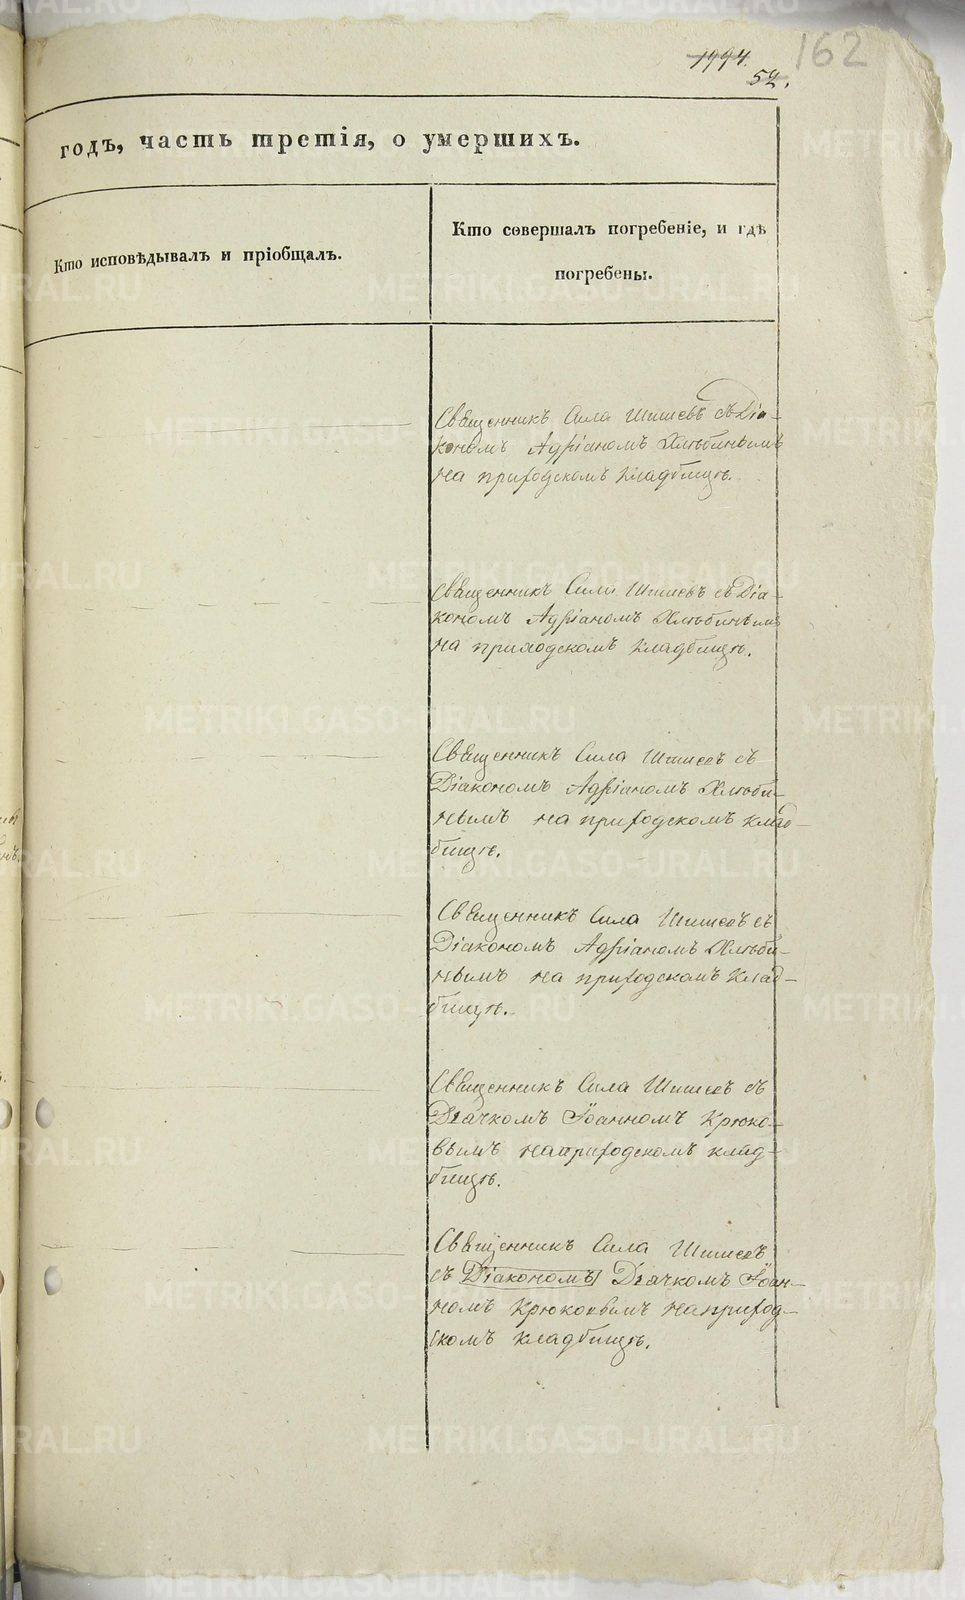 1994.
52.
162
годъ, часть третія, о умершихъ.
Кто исповѣдывалъ и пріобщалъ.
Кто совершалъ погребеніе, и гдѣ
погребены.
Священникъ Сила Шишевъ съ Діа-
кономъ Адріаномъ Хлѣбинымъ
на приходскомъ кладбищѣ.
Священникъ Сила Шишевъ съ Діа-
кономъ Адріаномъ Хлѣбинымъ
на приходскомъ кладбищѣ.
Священникъ Сила Шишевъ съ
Діакономъ Адріаномъ Хлѣби-
нымъ на приходскомъ клад-
бищѣ.
Священникъ Сила Шишевъ съ
Діакономъ Адріаномъ Хлѣби-
нымъ на приходскомъ клад-
бищѣ.
Священникъ Сила Шишевъ съ
Дьячкомъ Іоанномъ Крюко-
вымъ на приходскомъ клад-
бищѣ.
Священникъ Сила Шишевъ
съ Діакономъ Дьячкомъ Іоан-
номъ Крюковымъ на приход-
скомъ кладбищѣ.
METRIKI.GASO-URAL.RU